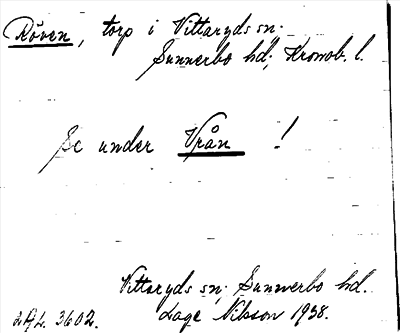 Röven, torp i Vittaryds sn.
Sunnerbo hd., Kronob. l.
Se under Vrån !
Vittaryds sn, Sunnerbo hd.
LAL. 3602. Lage Nilsson 1938.